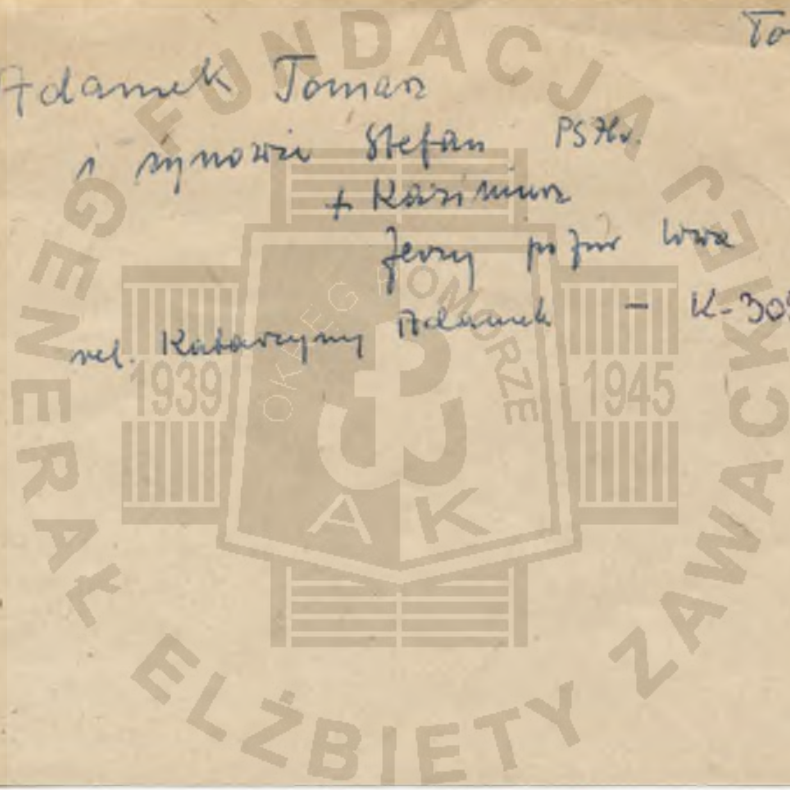 To
Adamek Tomasz
i synowie Stefan PSZk.
+ Kazimierz
Jerzy
rel. Katarzyny Adamek - K-309
FUNDACJA GENERAŁ ELŻBIETY ZAWACKIEJ
OKRĘG POMORZE
1939 1945
AK